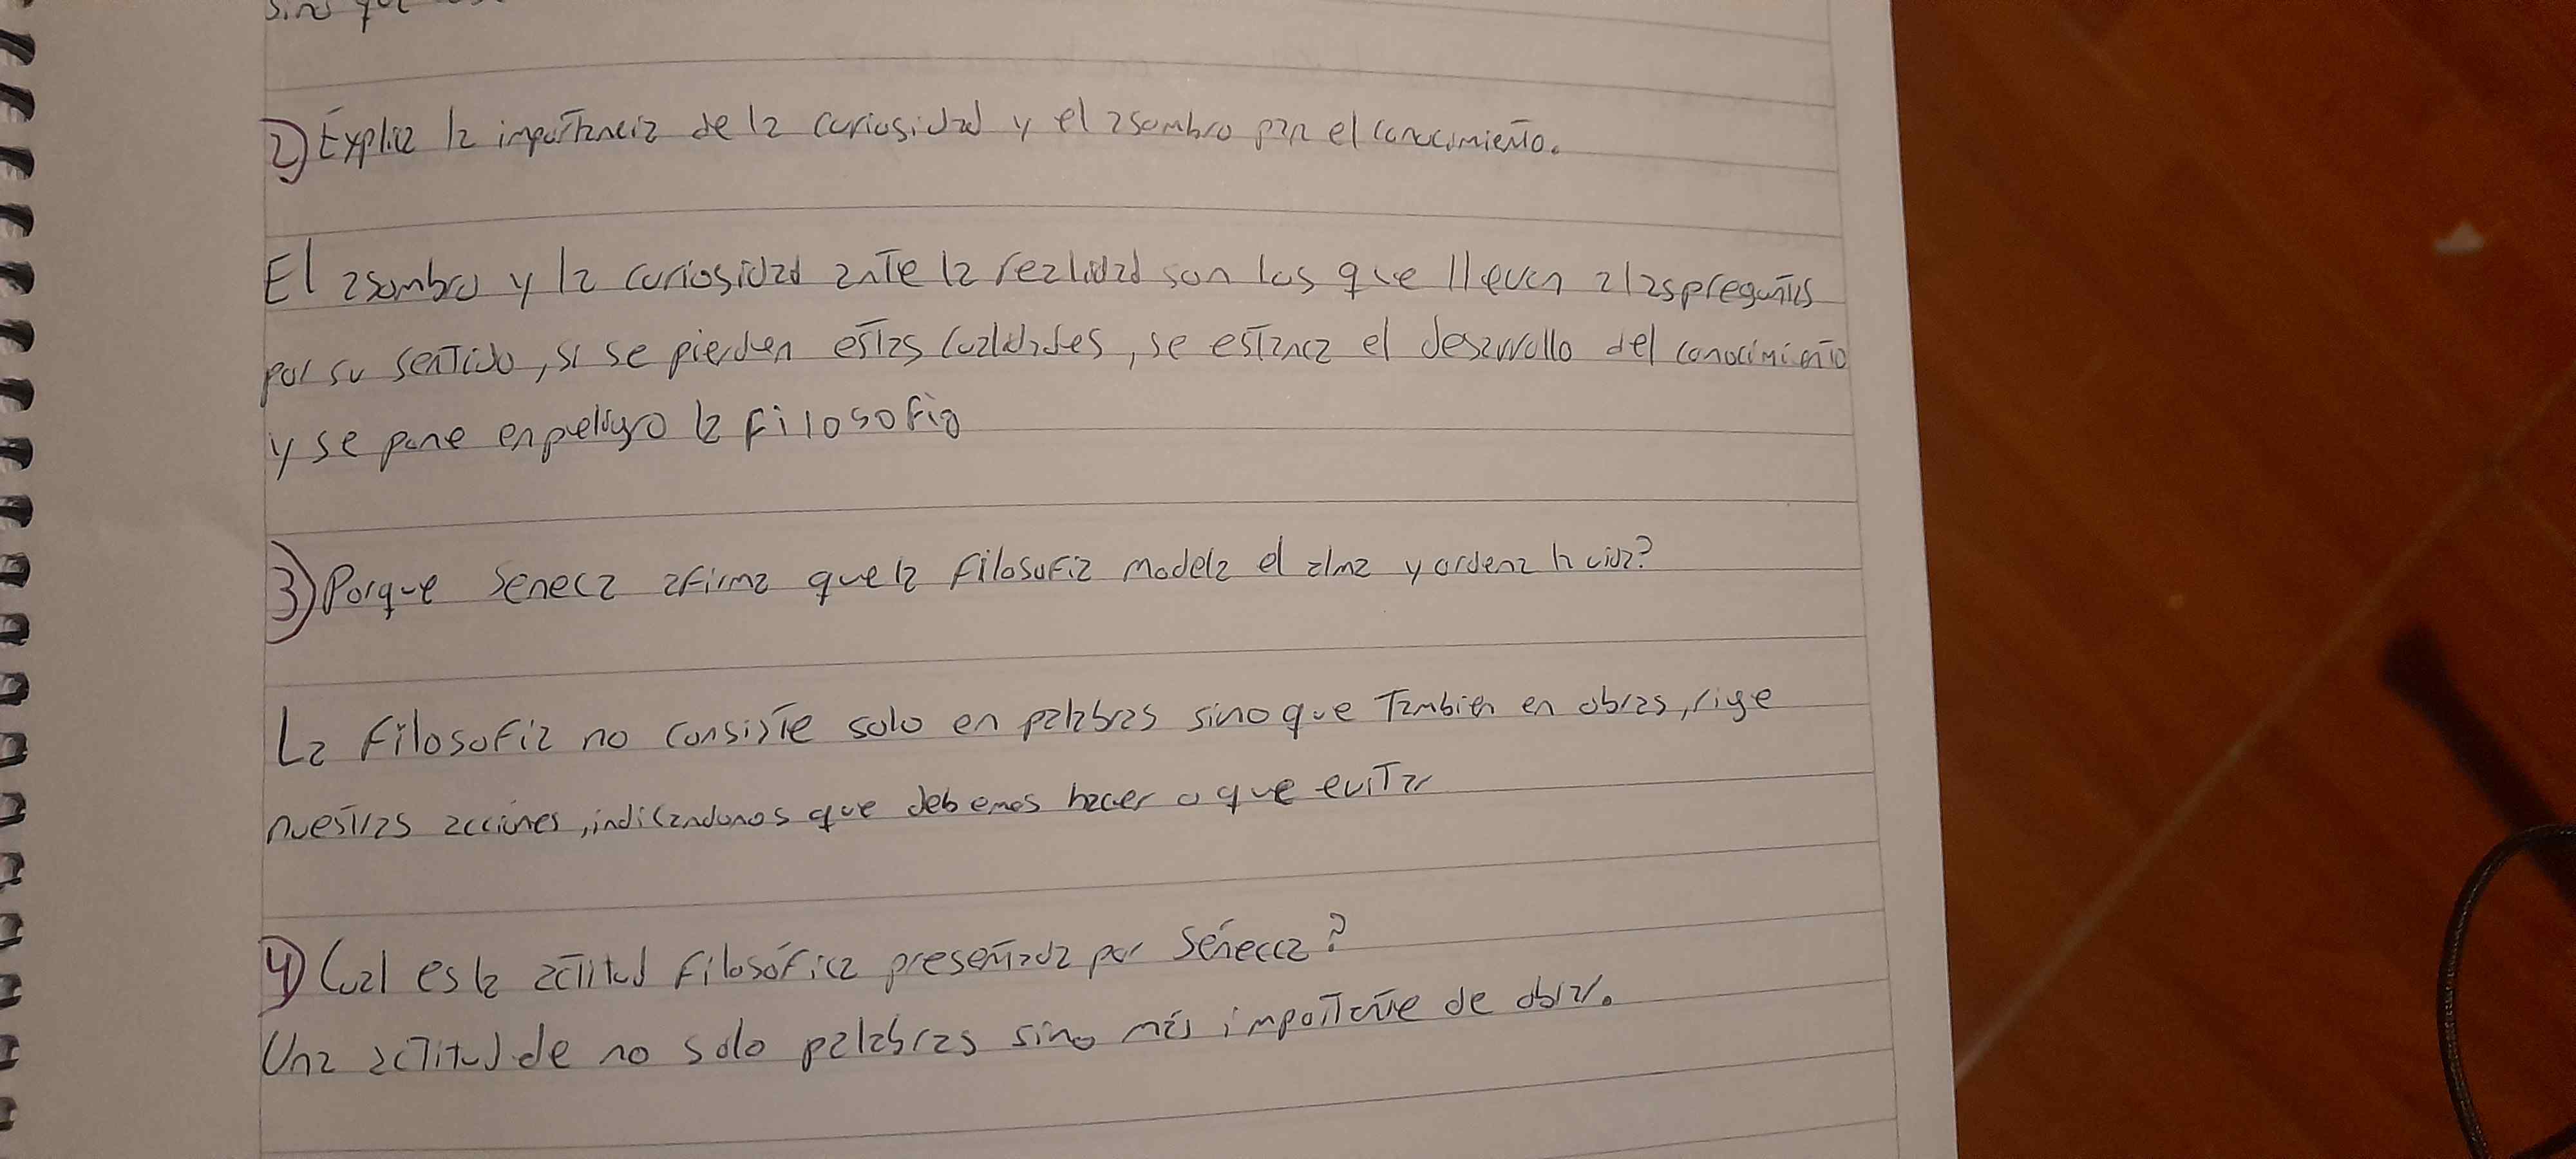 sino que
2) Explica la importancia de la curiosidad y el asombro para el conocimiento.
El asombro y la curiosidad ante la realidad son los que llevan a las preguntas
por su sentido, si se pierden estas cualidades, se estanca el desarrollo del conocimiento
y se pone en peligro la filosofia
3) Porque Seneca afirma que la filosofia modela el alma y ordena la vida?
La filosofia no consiste solo en palabras sino que Tambien en obras, rige
nuestras acciones, indicandonos que debemos hacer o que evitar
4) Cual es la actitud filosófica presentada por Séneca?
Una actitud de no solo palabras sino más importante de obrar.